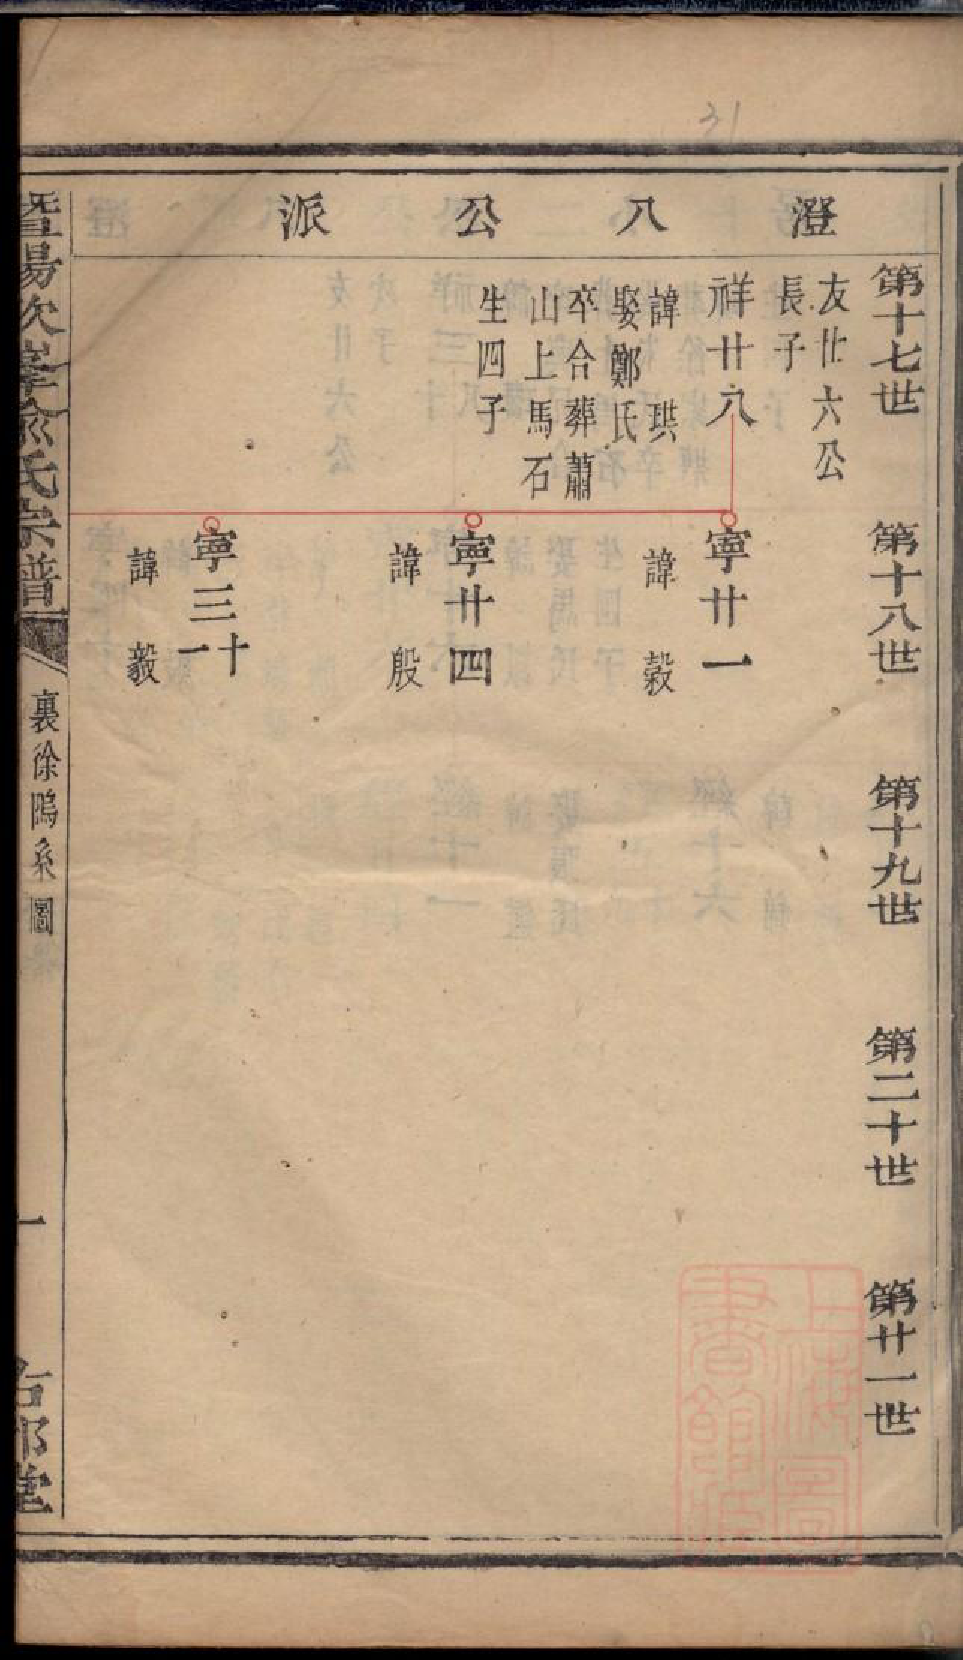 31
澄八公派
第十七世
第十八世
第十九世
第二十世
第廿一世
友廿六公
長子
祥廿八
諱珙
娶鄭氏
卒合葬蕭
山上馬石
生四子
寧廿一
諱穀
寧廿四
諱殷
寧三十一
諱毅
暨陽次峯俞氏宗譜
裏徐隖系圖
一
右郎堂
上海圖書館藏